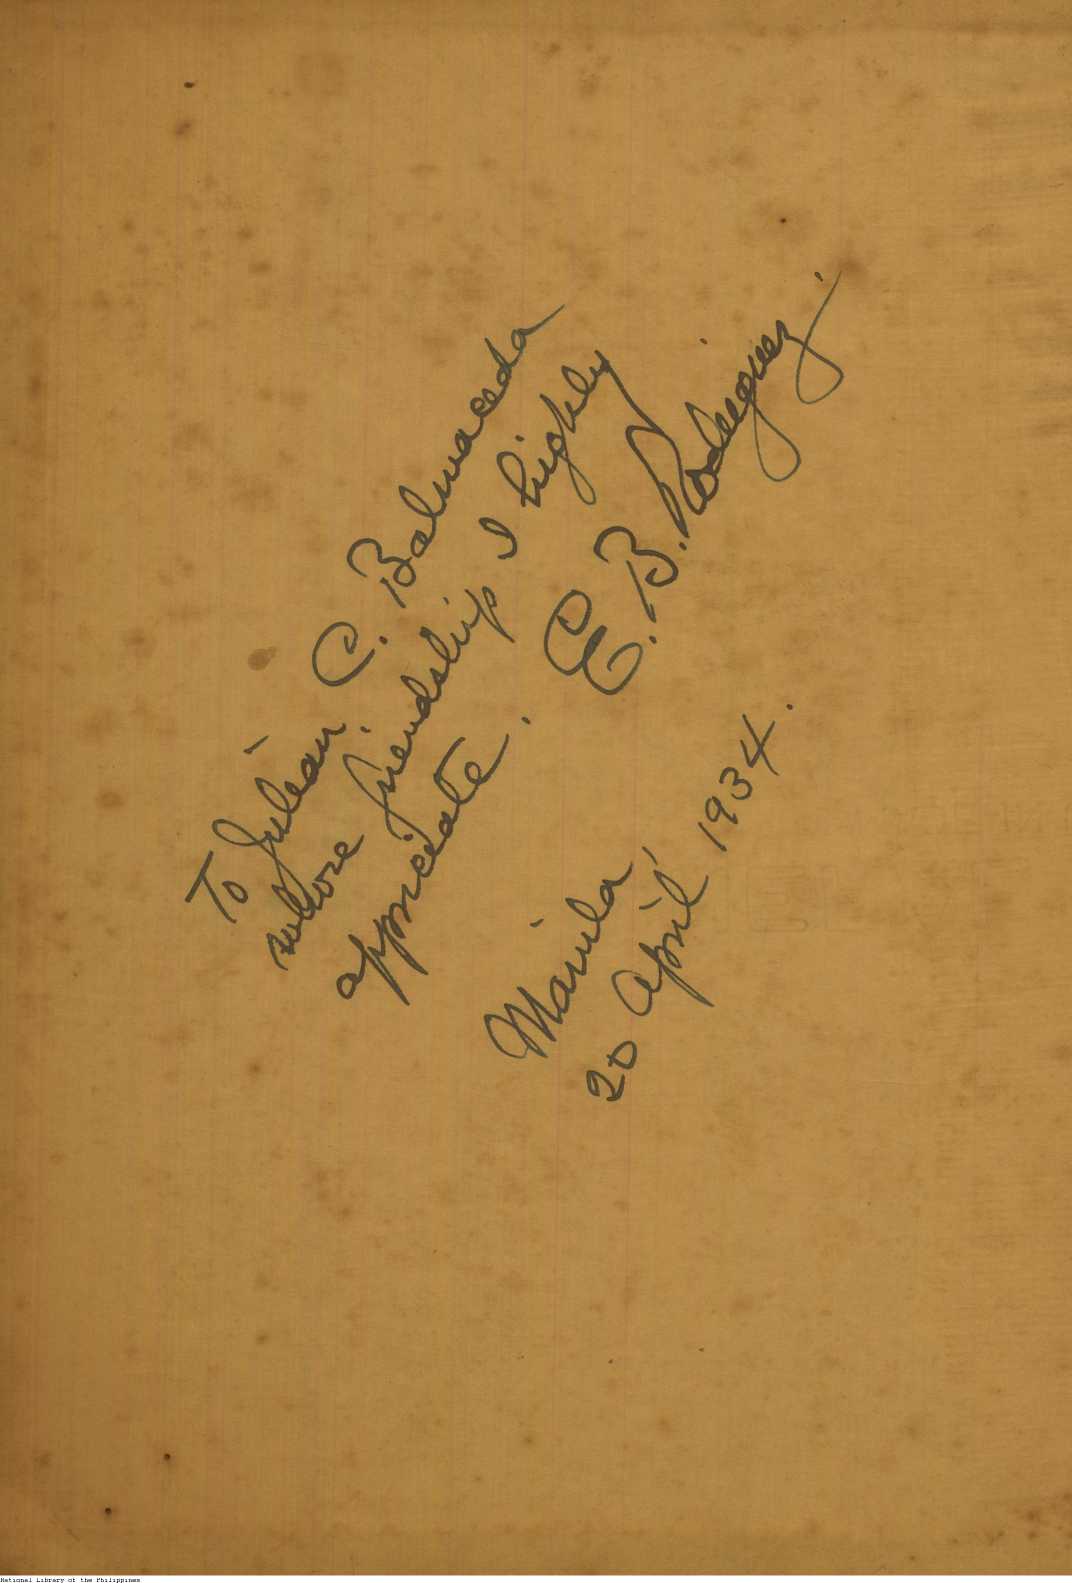 To Julian C. Balmaceda
whose friendship I highly
appreciate.
E. B. Rodriguez.
Manila,
20 April 1934.
National Library of the Philippines